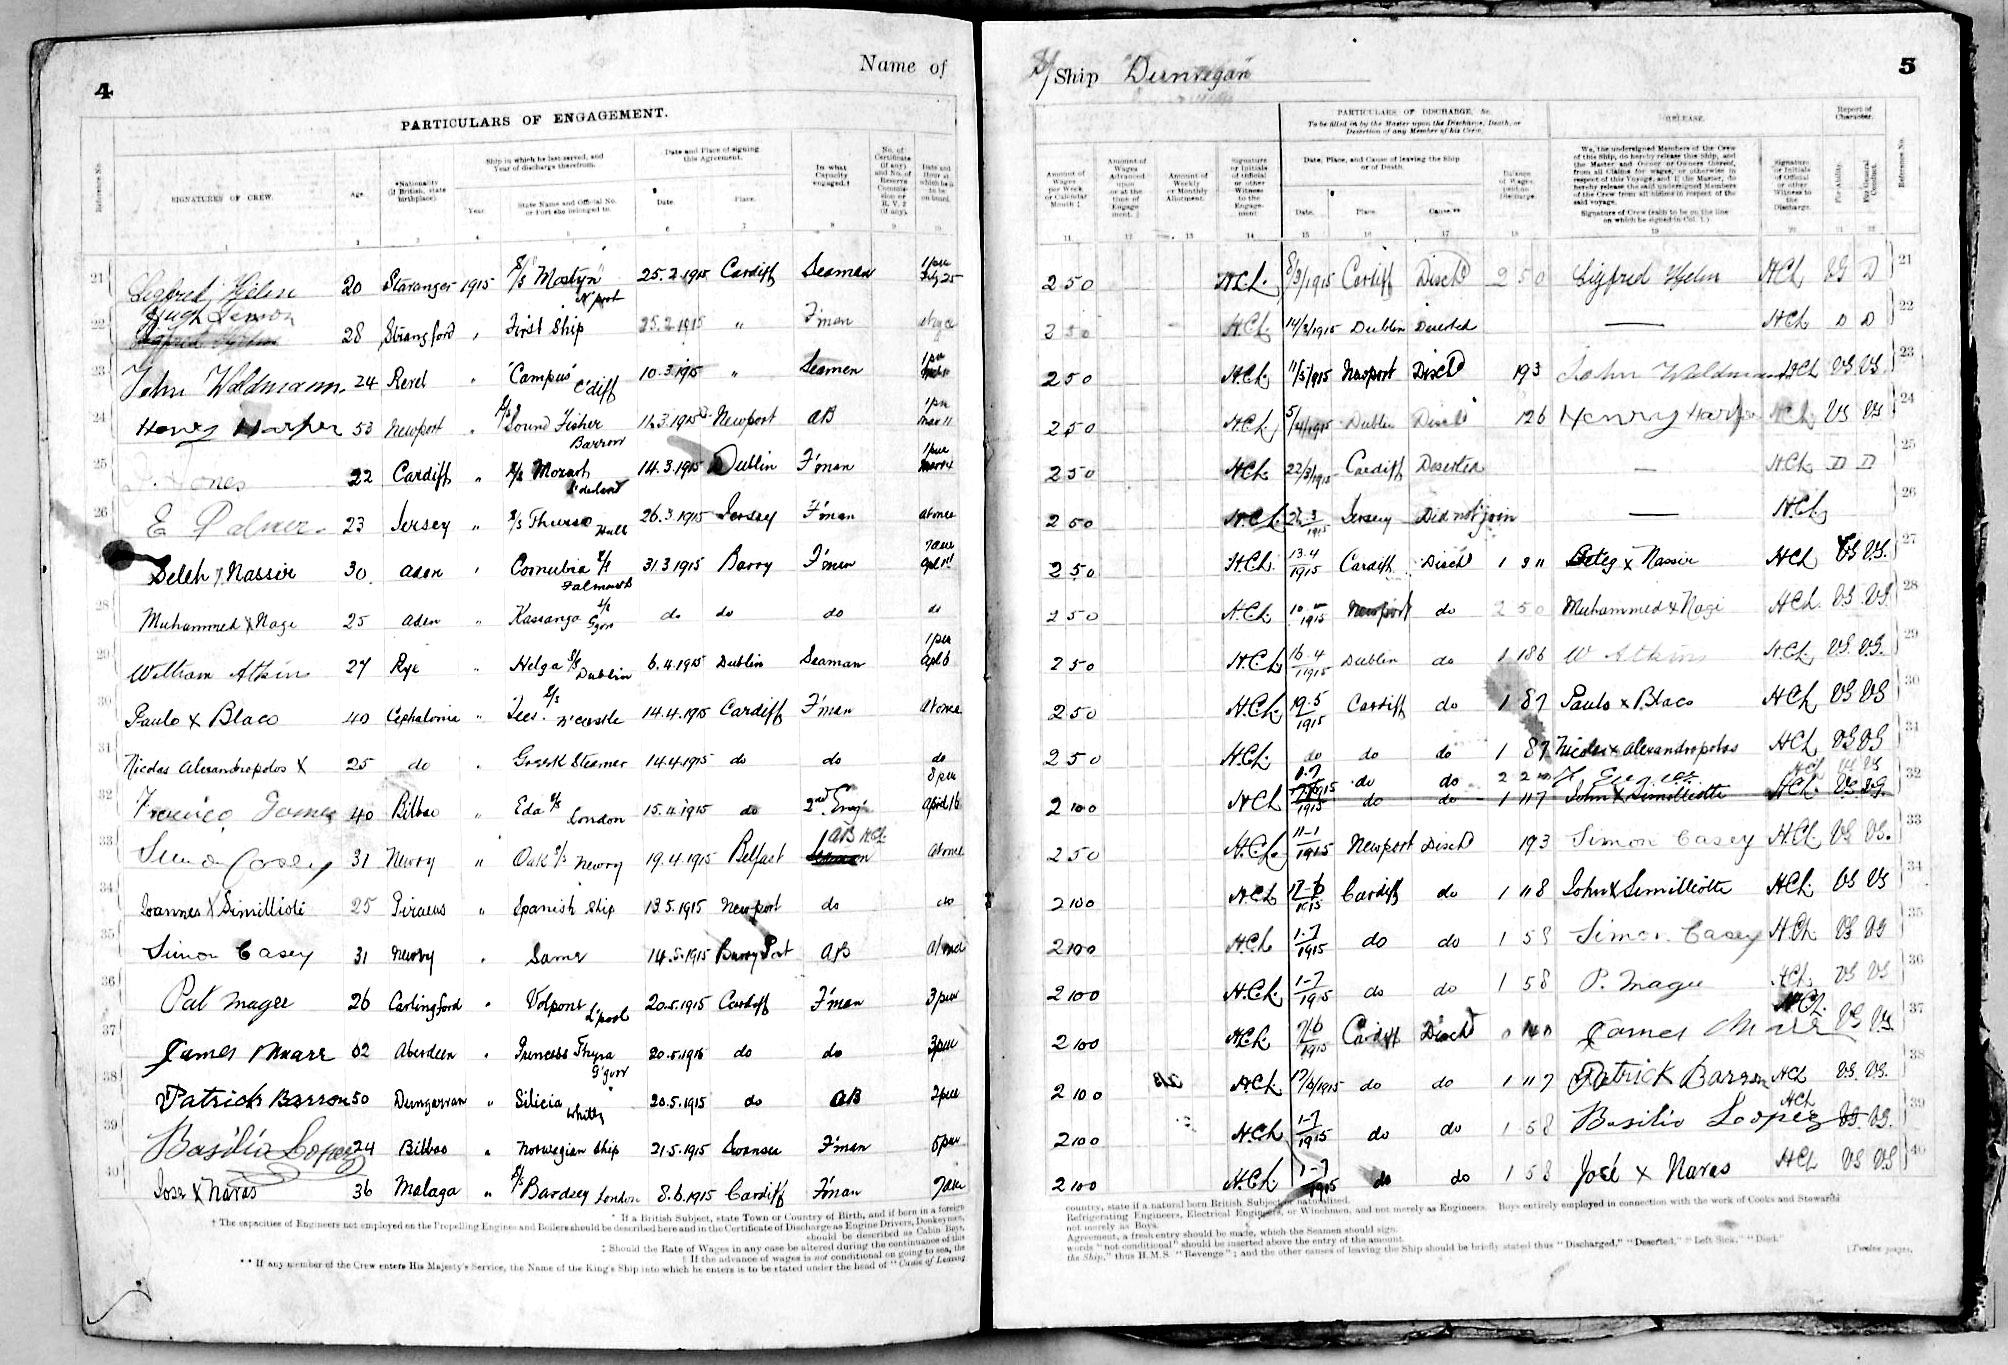 4
Name of
PARTICULARS OF ENGAGEMENT.
Reference No.
SIGNATURES OF CREW.
Age.
*Nationality (if British, state birthplace).
Ship in which he last served, and Year of discharge therefrom.
Year.
State Name and Official No. or Port she belonged to.
Date and Place of signing this Agreement.
Date.
Place.
In what Capacity engaged.†
No. of Certificate (if any) and No. of Reserve Commission or R. V. 2 (if any).
Date and Hour at which he is to be on board.
1 2 3 4 5 6 7 8 9 10
21 Sigfred Hjelm 20 Stavanger 1915 S/S "Mostyn" N'port 25.2.1915 Cardiff Seaman 1 pm Feby 25
22 Hugh 28 Strangford " First Ship 25.2.1915 " F'man
23 John Waldmann. 24 Revel " "Campus" C'diff 10.3.1915 " Seaman 1 pm
24 Henry Harper 53 Newport " S/S Sound Fisher Barrow 11.3.1915 Newport AB 1 pm Mar 11
25 Jones 22 Cardiff " S/S Mozart S'derland 14.3.1915 Dublin F'man 1 pm
26 E Palmer. 23 Jersey " S/S Thurso Hull 26.3.1915 Jersey F'man at once
Saleh x Nassir 30 Aden " Cornubia S/S Falmouth 31 3 1915 Barry F'man 7 am Apl 1st
28 Muhammed x Nagi 25 Aden " Kassanga S/S Ggow do do do do
29 William Atkins 27 Rye " Helga S/S Dublin 6.4.1915 Dublin Seaman 1 pm Apl 6
30 Paulo x Blaco 40 Cephalonia " Tees S/S N'castle 14.4.1915 Cardiff F'man at once
31 Nicolas Alexandropolos x 25 do " Greek Steamer 14.4.1915 do do do
32 Gomez 40 Bilbao " Eda S/S London 15.4.1915 do 2nd Eng'r 8 pm April 16
33 Simon Casey 31 Newry " Oak S/S Newry 19.4.1915 Belfast AB H.Ch. at once
34 Ioannes x Simillioti 25 Piraeus " Spanish Ship 13.5.1915 Newport do do
35 Simon Casey 31 Newry " Same 14.5.1915 Barry Port AB at once
36 Pat Magee 26 Carlingford " Volpone L'pool 20.5.1915 Cardiff F'man 3 pm
37 James Marr 52 Aberdeen " Princess Thyra G'gow 20.5.1915 do do 3 pm
38 Patrick Barron 50 Dungarvan " Silicia Whitby 20.5.1915 do AB 2 pm
39 Basilio Lopez 24 Bilbao " Norwegian Ship 21.5.1915 Swansea F'man 5 pm
40 Jose x Navas 36 Malaga " S/S Bardsey London 8.6.1915 Cardiff F'man 7 am
* If a British Subject, state Town or Country of Birth, and if born in a foreign
† The capacities of Engineers not employed on the Propelling Engines and Boilers should be described here and in the Certificate of Discharge as Engine Drivers, Donkeymen,
should be described as Cabin Boys,
‡ Should the Rate of Wages in any case be altered during the continuance of this
‡ If the advance of wages is not conditional on going to sea, the
** If any member of the Crew enters His Majesty's Service, the Name of the King's Ship into which he enters is to be stated under the head of "Cause of Leaving
S/Ship "Dunvegan"
5
PARTICULARS OF DISCHARGE, &c.
To be filled in by the Master upon the Discharge, Death, or Desertion of any Member of his Crew.
RELEASE.
Report of Character.
Amount of Wages per Week or Calendar Month ‡
Amount of Wages Advanced upon or at the time of Engagement. ‡
Amount of Weekly or Monthly Allotment.
Signature or Initials of Official or other Witness to the Engagement
Date, Place, and Cause of leaving the Ship or of Death.
Date.
Place.
Cause.**
Balance of Wages paid on Discharge.
We, the undersigned Members of the Crew of this Ship, do hereby release this Ship, and the Master and Owner or Owners thereof, from all Claims for wages, or otherwise in respect of this Voyage, and I, the Master, do hereby release the said undersigned Members of the Crew from all claims in respect of the said voyage.
Signature of Crew (each to be on the line on which he signed in Col. 1.)
Signature or Initials of Official or other Witness to the Discharge.
For Ability.
For General Conduct.
Reference No.
11 12 13 14 15 16 17 18 19 20 21 22
2 5 0 H.Ch. 8/3/1915 Cardiff Disch'd 2 5 0 Sigfred Hjelm H.Ch. VG D 21
2 5 0 H.Ch. 14/3/1915 Dublin Deserted — H.Ch. D D 22
2 5 0 H.Ch. 11/5/1915 Newport Disch'd 19 3 John Waldmann H.Ch VG VG 23
2 5 0 H.Ch. 5/4/1915 Dublin Disch'd 12 6 Henry Harper H.Ch. VG VG 24
2 5 0 H.Ch. 22/3/1915 Cardiff Deserted — H.Ch. D D 25
2 5 0 H.Ch. 1915 Jersey Did not join — H.Ch. 26
2 5 0 H.Ch. 13.4 1915 Cardiff Disch'd x Nassir H.Ch VG VG. 27
2 5 0 H.Ch. 1915 Newport do 2 5 0 Muhammed x Nagi H.Ch. VG VG 28
2 5 0 H.Ch. 16.4 1915 Dublin do 1 18 6 W Atkins H.Ch. VG. VG. 29
2 5 0 H.Ch. 19.5 1915 Cardiff do 1 8 7 Paulo x Blaco H.Ch VG VG 30
2 5 0 H.Ch. do do do 1 8 7 Nicolas x Alexandropolos H.Ch VG VG 31
1915 do do
2 10 0 H.Ch 1915 do do 1 11 7 John x Similliotti H.Ch. VG VG. 32
2 5 0 H.Ch. 1915 Newport Disch'd 19 3 Simon Casey H.Ch. VG VG. 33
2 10 0 H.Ch 1915 Cardiff do 1 11 8 John x Simillioti H.Ch. VG VG 34
2 10 0 H.Ch. 1-7 1915 do do 1 5 8 Simon Casey H.Ch VG VG 35
2 10 0 H.Ch. 1-7 1915 do do 1 5 8 P. Magee H.Ch. VG VG 36
2 10 0 H.Ch. 7/6 1915 Cardiff Disch'd James Marr H.Ch. VG VG 37
2 10 0 H.Ch 17/6/1915 do do 1 11 7 Patrick Barron H.Ch VG. VG. 38
2 10 0 H.Ch 1-7 1915 do do 1 5 8 Basilio Loopez H.Ch VG. VG. 39
2 10 0 H.Ch. 1-7 1915 do do 1 5 8 José x Navas H.Ch VG VG 40
country, state if a natural born British Subject or naturalised.
Refrigerating Engineers, Electrical Engineers, or Winchmen, and not merely as Engineers. Boys entirely employed in connection with the work of Cooks and Stewards
not merely as Boys.
Agreement, a fresh entry should be made, which the Seamen should sign.
words "not conditional" should be inserted above the entry of the amount.
the Ship," thus H.M.S. "Revenge"; and the other causes of leaving the Ship should be briefly stated thus "Discharged," "Deserted," "Left Sick," "Died."
[Twelve pages.